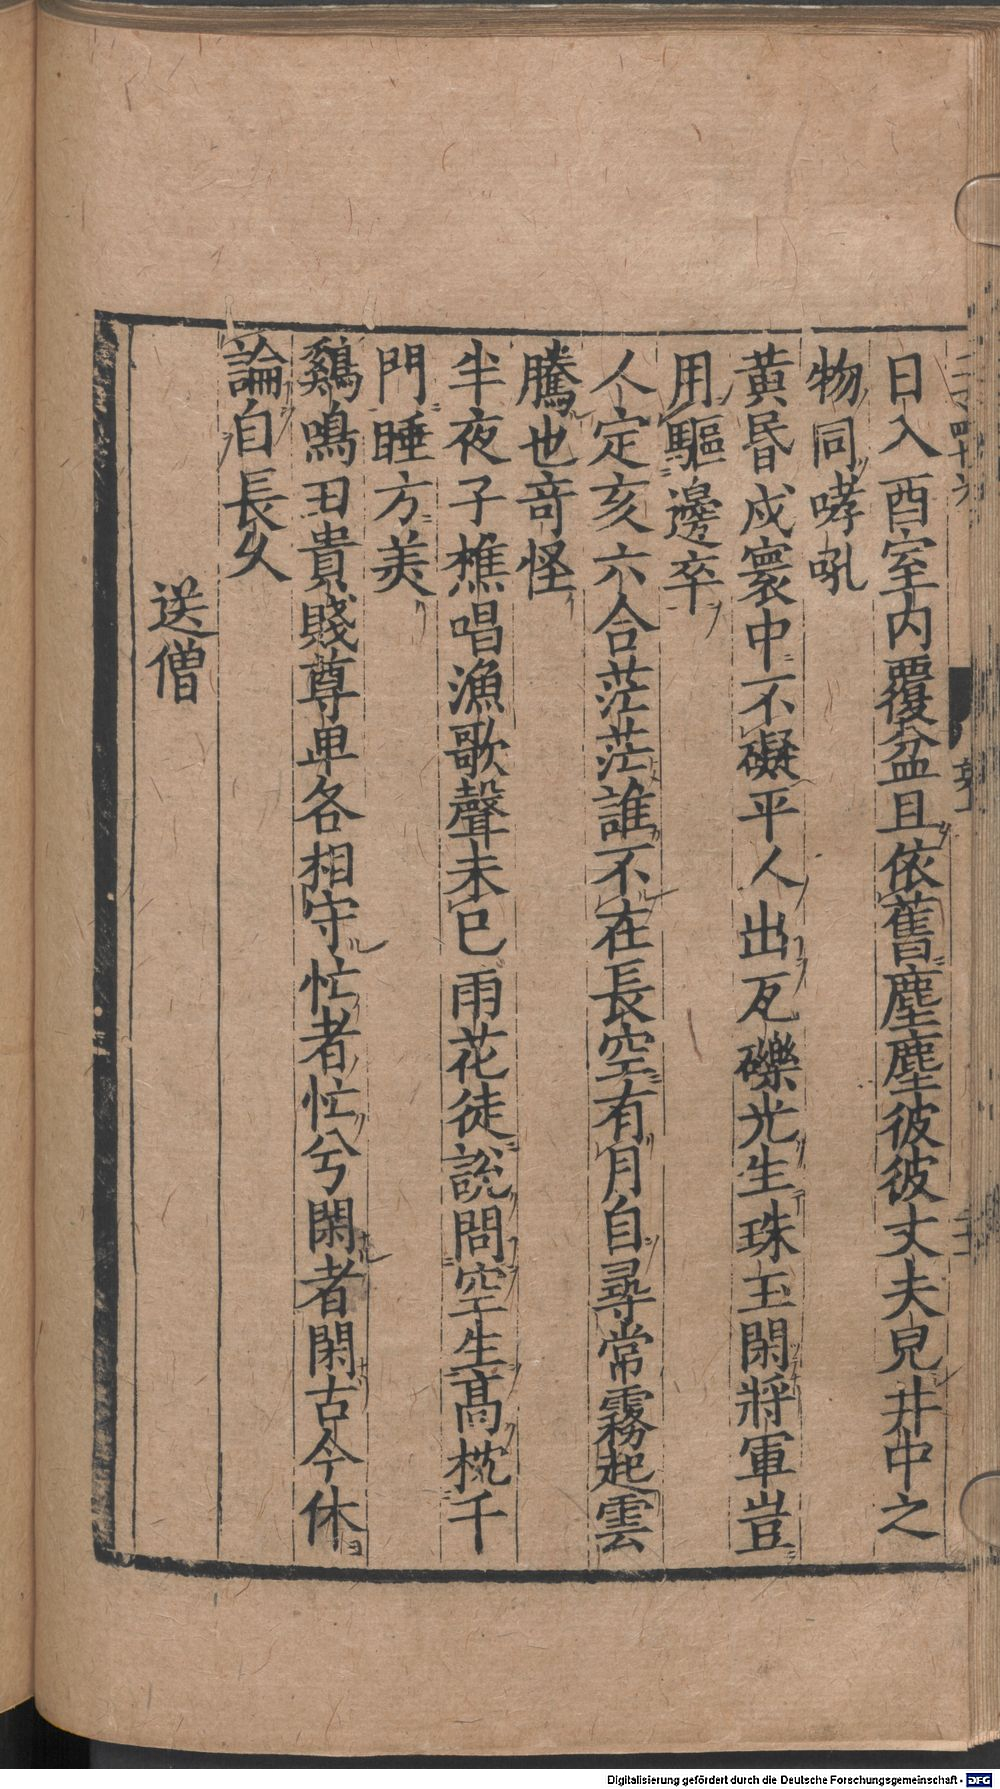 日入酉室内覆盆且依舊塵塵彼彼丈夫兒井中之
物同哮吼
黄昏戌寰中不礙平人出瓦礫光生珠玉閑將軍豈
用驅邊卒
人定亥六合茫茫誰不在長空有月自尋常霧起雲
騰也竒怪
半夜子樵唱漁歌聲未已雨花徒説問空生髙枕千
門睡方美
鷄鳴丑貴賤尊卑各相守忙者忙兮閑者閑古今休
論自長久
送僧
Digitalisierung gefördert durch die Deutsche Forschungsgemeinschaft - DFG